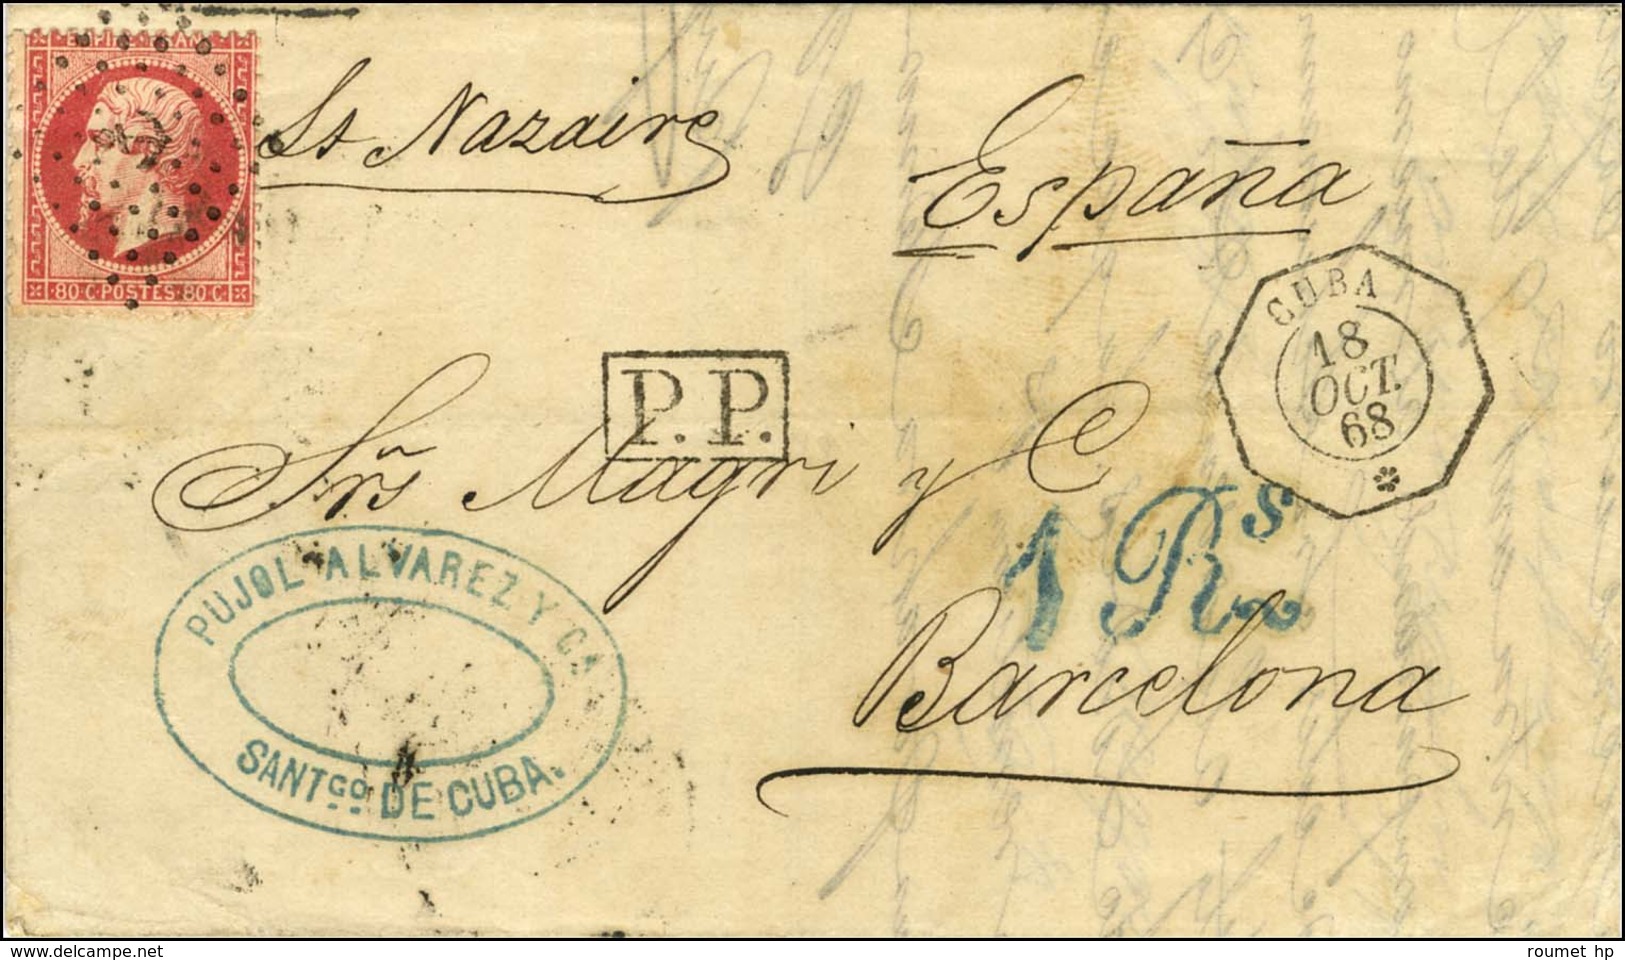 EMPIRE FRANC
80 C POSTES 80 C
St Nazaire
España
CUBA
18
OCT.
68
P.P.
Srs Magri y C
1 Rs
Barcelona
PUJOL ALVAREZ Y CA
SANTGO DE CUBA.
www.delcampe.net
roumet hp